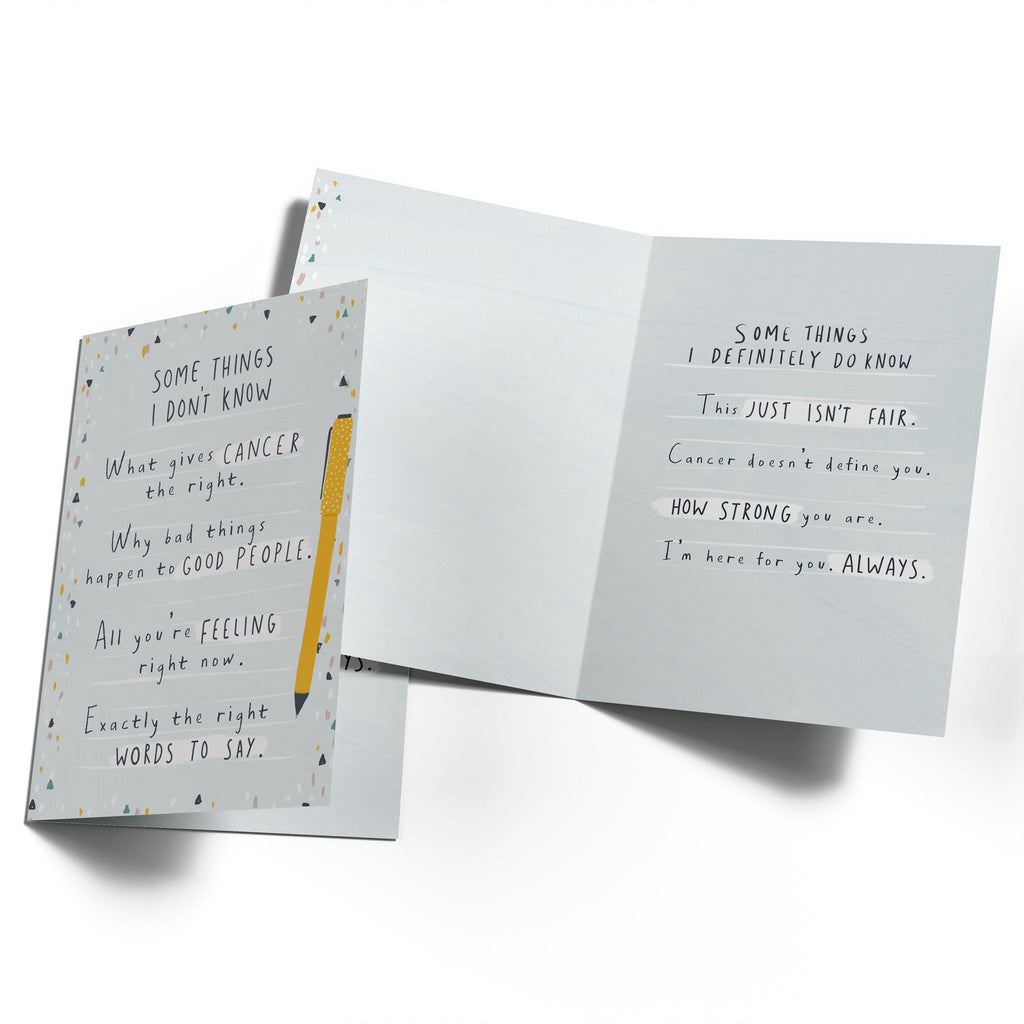 SOME THINGS
I DON'T KNOW
What gives CANCER
the right.
Why bad things
happen to GOOD PEOPLE.
All you're FEELING
right now.
Exactly the right
WORDS TO SAY.
SOME THINGS
I DEFINITELY DO KNOW
This JUST ISN'T FAIR.
Cancer doesn't define you.
HOW STRONG you are.
I'm here for you. ALWAYS.